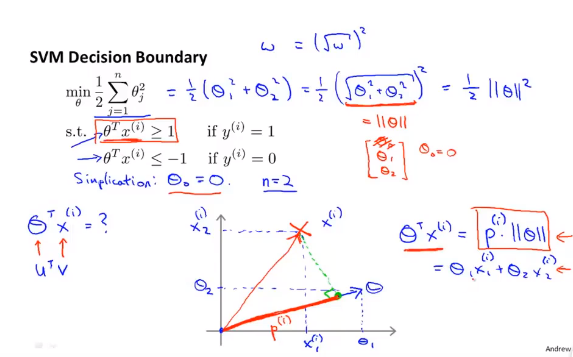 ω = (√ω)²
SVM Decision Boundary
min_θ 1/2 ∑_{j=1}^{n} θ_j² = 1/2 (θ₁² + θ₂²) = 1/2 (√(θ₁² + θ₂²))² = 1/2 ||θ||²
= ||θ||
s.t. θᵀx⁽ⁱ⁾ ≥ 1 if y⁽ⁱ⁾ = 1
→ θᵀx⁽ⁱ⁾ ≤ −1 if y⁽ⁱ⁾ = 0
[θ₁ θ₂] θ₀ = 0
Simplication: θ₀ = 0. n=2
θᵀx⁽ⁱ⁾ = ?
↑ ↑
uᵀv
x₂⁽ⁱ⁾ x⁽ⁱ⁾
θ₂ θ
p⁽ⁱ⁾
x₁⁽ⁱ⁾ θ₁
θᵀx⁽ⁱ⁾ = p⁽ⁱ⁾ · ||θ|| ←
= θ₁x₁⁽ⁱ⁾ + θ₂x₂⁽ⁱ⁾ ←
Andrew